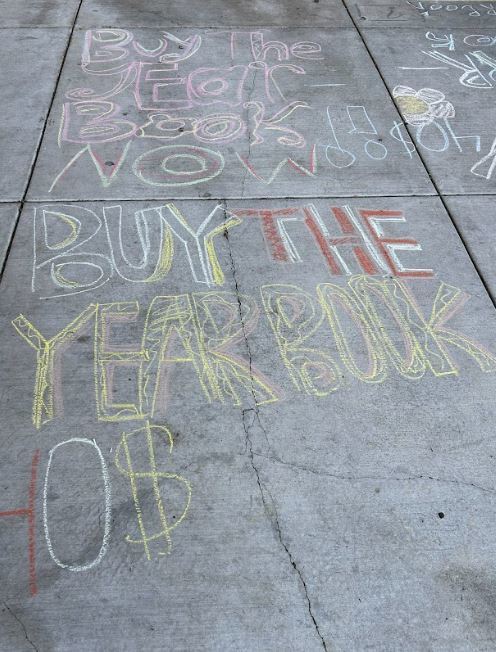 Buy The
YEar
Book
NOW!!
BUY THE
YEARBOOK
10$